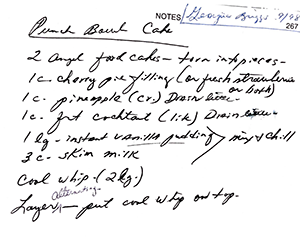 NOTES Georgia Briggs 9/98
267
Punch Bowl Cake
2 angel food cakes - torn into pieces -
1 c - cherry pie filling (or fresh strawberries or both)
1 c - pineapple (cr.) Drain
1 c - frt cocktail (lik) Drain
1 lg - instant vanilla pudding > mix & chill
3 c - skim milk
Cool whip - (2 kg.)
Layer alternating - put cool whip on top -